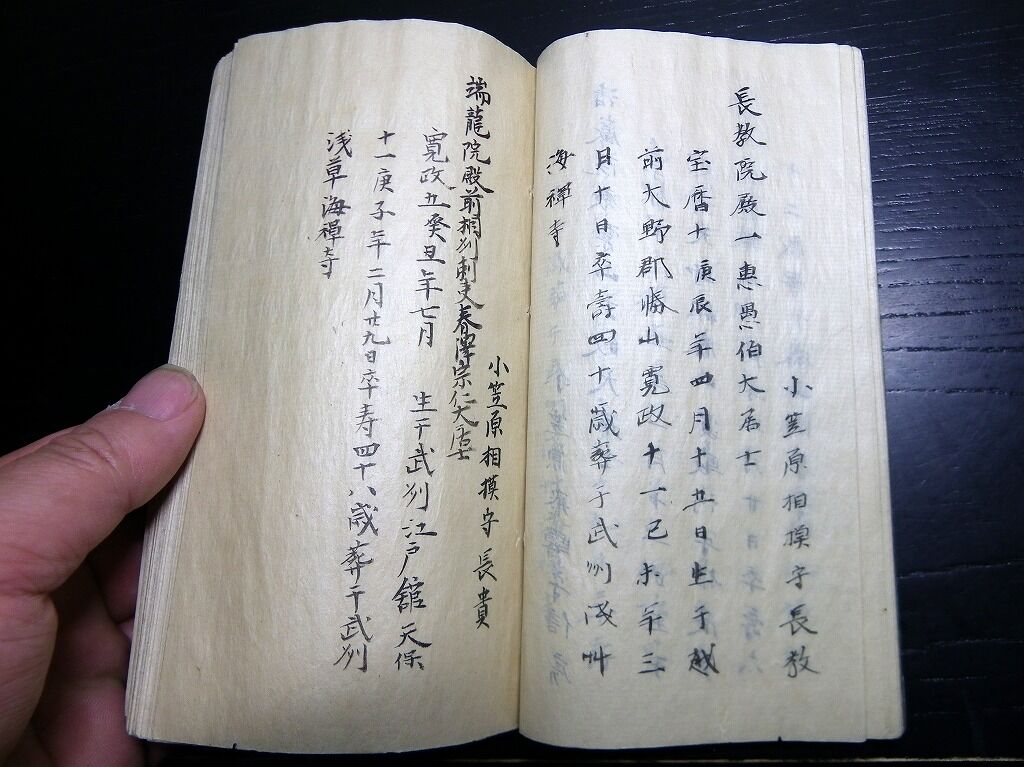 小笠原相摸守長教
長教院殿一惠愚伯大居士
宝暦十庚辰年四月十五日生于越
前大野郡勝山寛政十一己未年三
月十日卒壽四十歳葬于武州浅艸
海禅寺
小笠原相摸守長貴
端龍院殿前相刕刺吏春澤宗仁大居士
寛政五癸丑年七月 生于武刕江戸館天保
十一庚子年二月廿九日卒寿四十八歳葬于武刕
浅草海禅寺